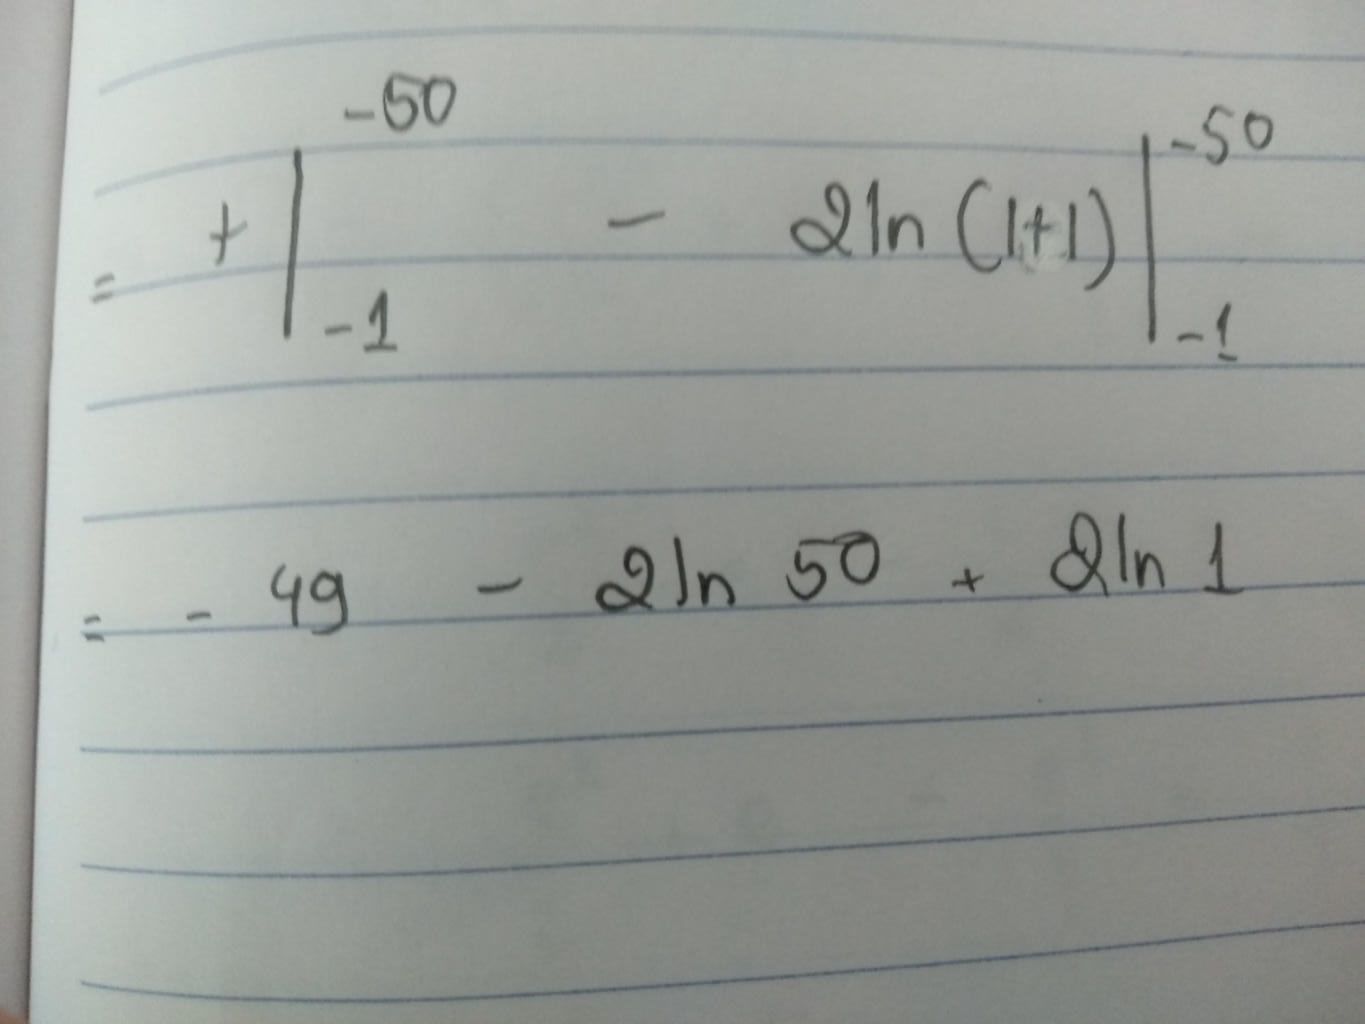 = t |_{-1}^{-50} - 2ln (|t|) |_{-1}^{-50}
= - 49 - 2ln 50 + 2ln 1